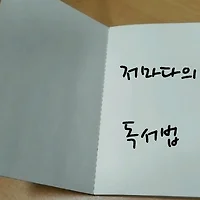 저마다의
독서법